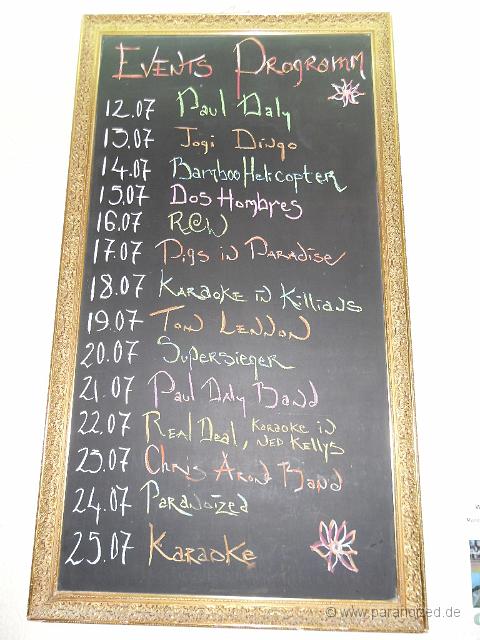 Events Programm
12.07 Paul Daly
13.07 Jogi Dingo
14.07 Bamboo Helicopter
15.07 Dos Hombres
16.07 RCW
17.07 Pigs in Paradise
18.07 Karaoke in Killians
19.07 Tom Lennon
20.07 Supersieger
21.07 Paul Daly Band
22.07 Real Deal, Karaoke in
Ned Kellys
23.07 Chris Aron Band
24.07 Paranoized
25.07 Karaoke
© www.paranoized.de